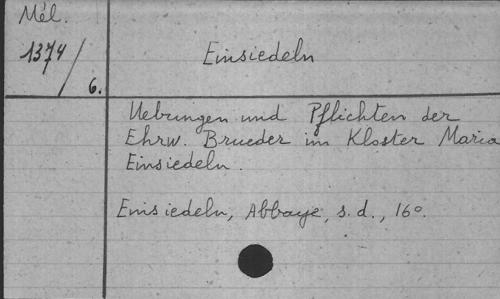 Mél.
1374/
6.
Einsiedeln
Uebungen und Pflichten der
Ehrw. Brueder im Kloster Maria
Einsiedeln.
Einsiedeln, Abbaye, s.d., 16°.